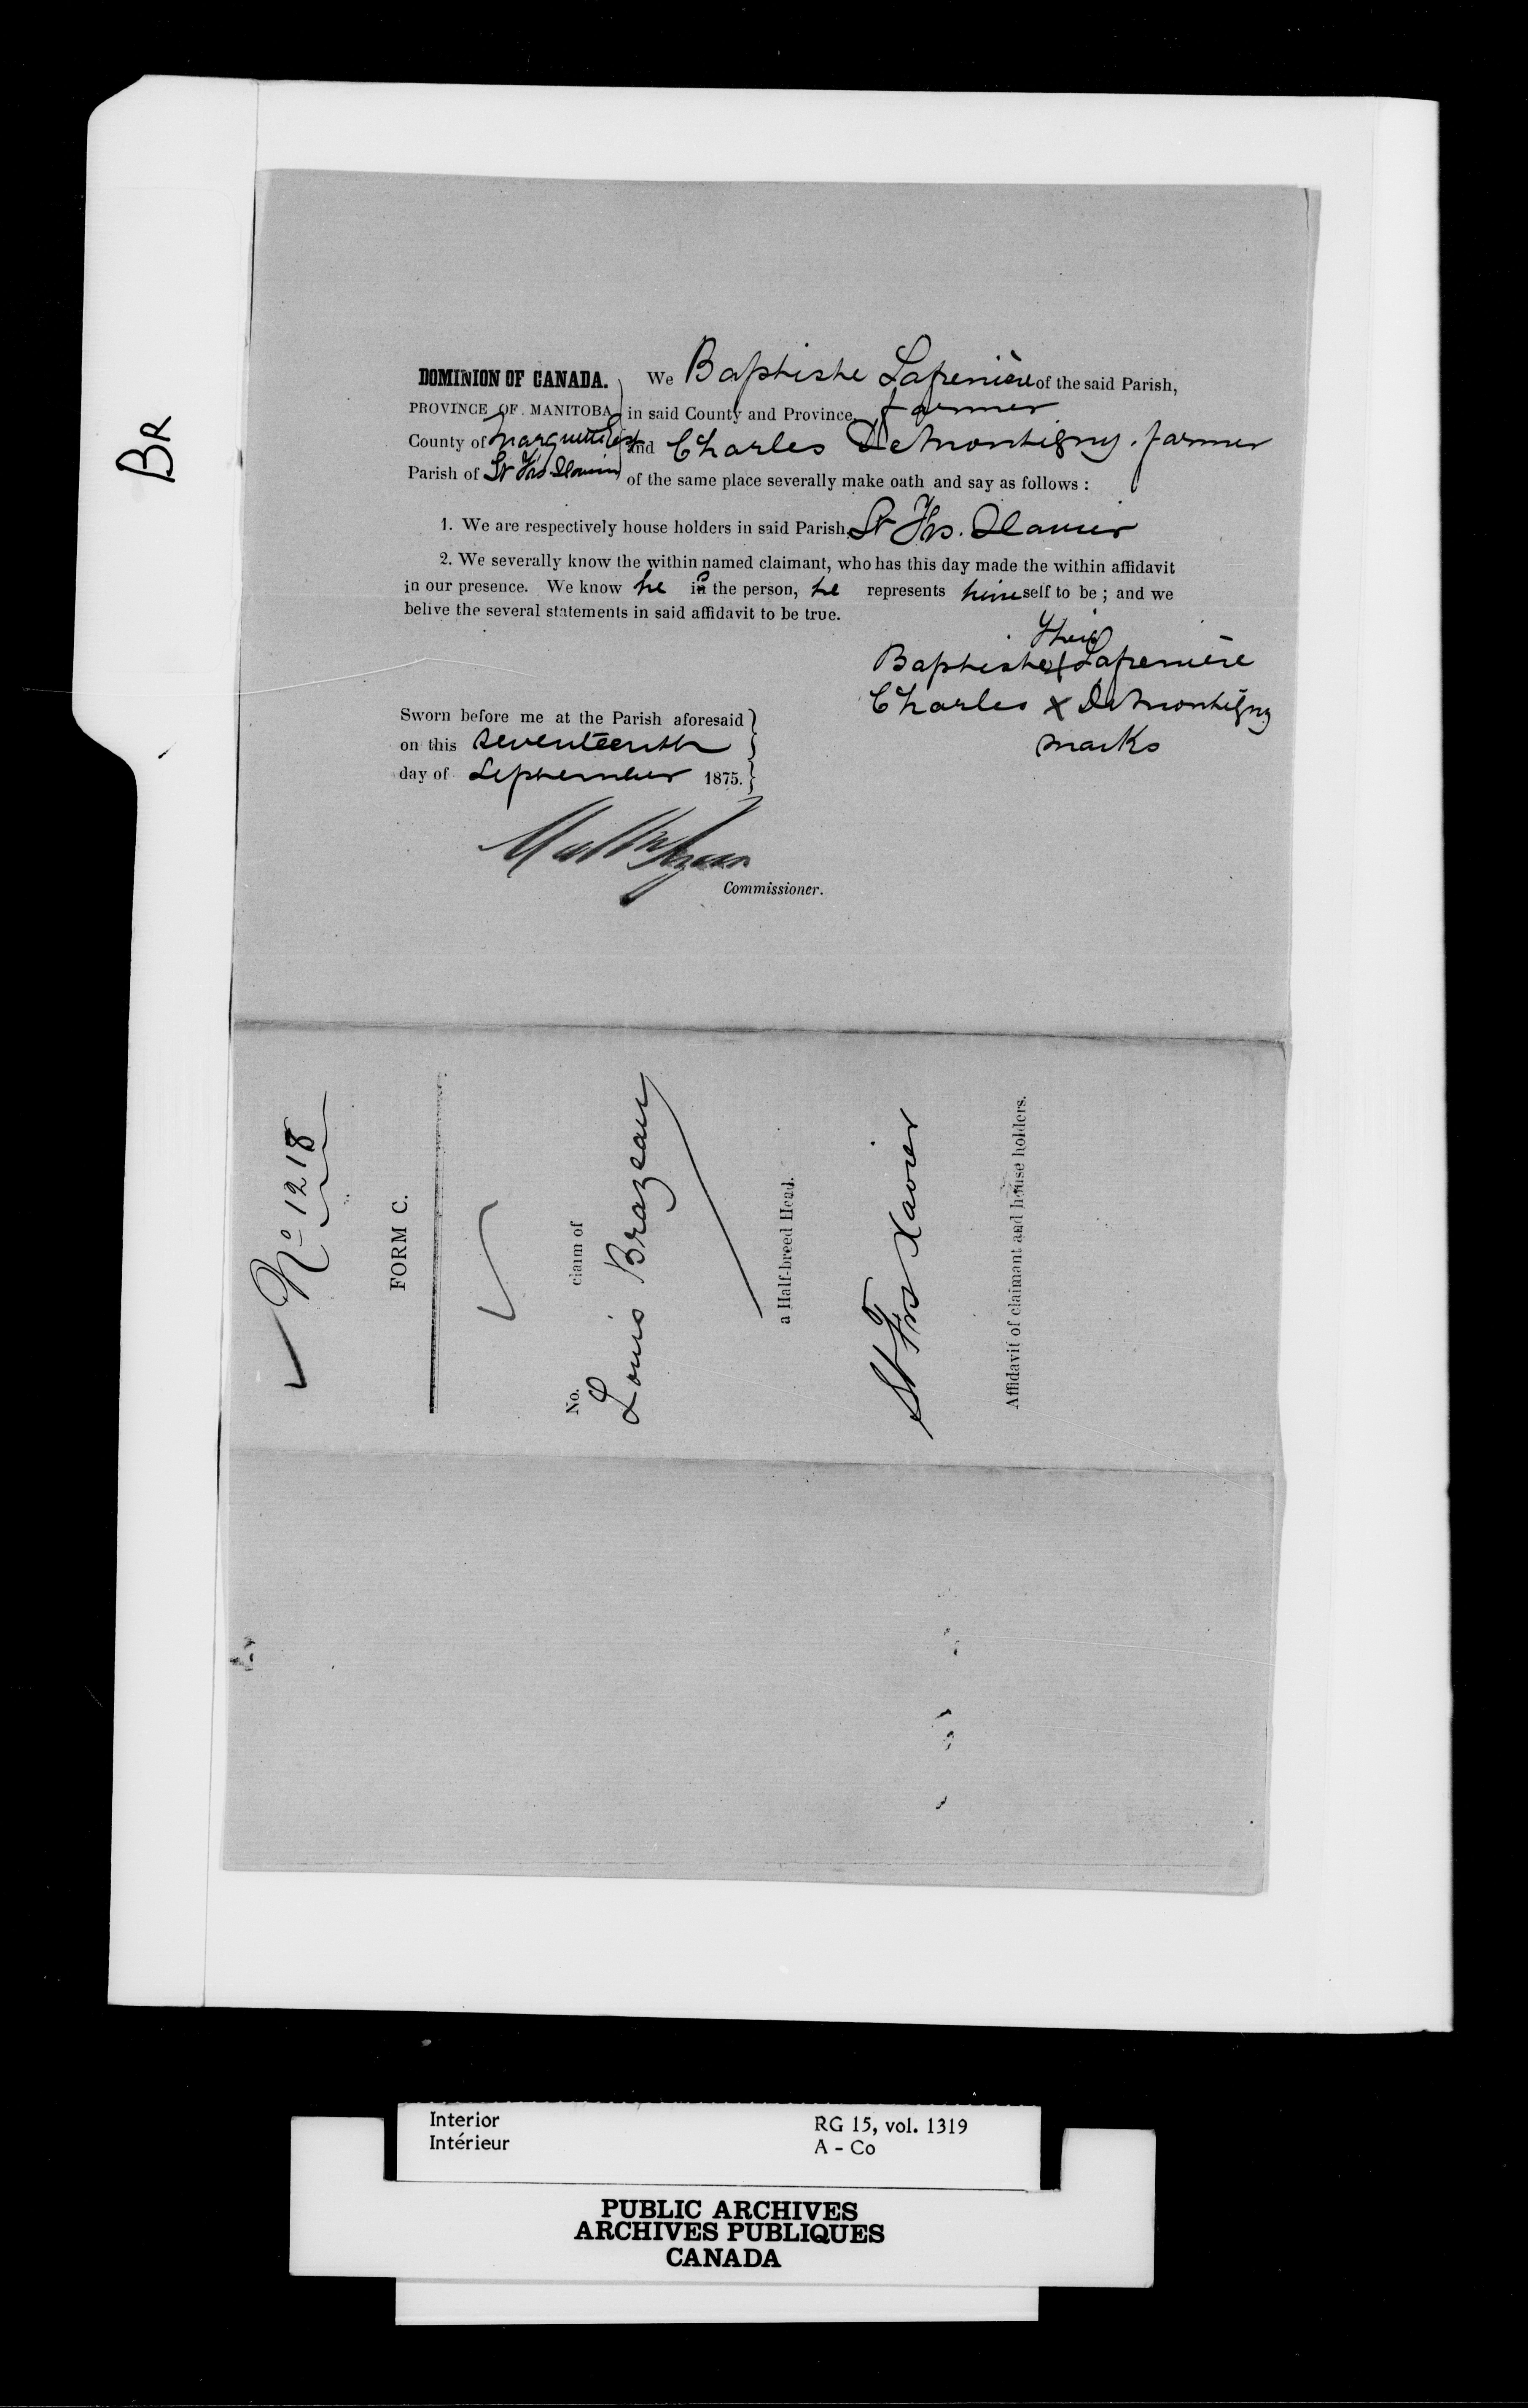 BR
DOMINION OF CANADA.
PROVINCE OF MANITOBA
County of Marquette East
Parish of St Frs Xavier
We Baptiste Lafrenière of the said Parish,
in said County and Province, farmer
and Charles DeMontigny. farmer
of the same place severally make oath and say as follows :
1. We are respectively house holders in said Parish, St Frs. Xavier
2. We severally know the within named claimant, who has this day made the within affidavit
in our presence. We know he is the person, he represents him self to be ; and we
belive the several statements in said affidavit to be true.
Their
Baptiste X Lafrenière
Charles X DeMontigny
marks
Sworn before me at the Parish aforesaid
on this seventeenth
day of September 1875.
Commissioner.
No 1218
FORM C.
No. claim of
Louis Brazeau
a Half-breed Head.
St Frs Xavier
Affidavit of claimant and house holders.
Interior
Intérieur
RG 15, vol. 1319
A - Co
PUBLIC ARCHIVES
ARCHIVES PUBLIQUES
CANADA